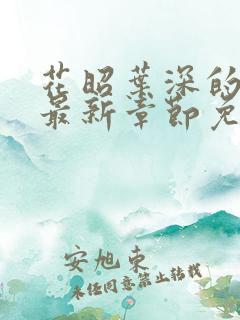 花昭葉深的
最新章節免
安旭東
未经同意禁止转载